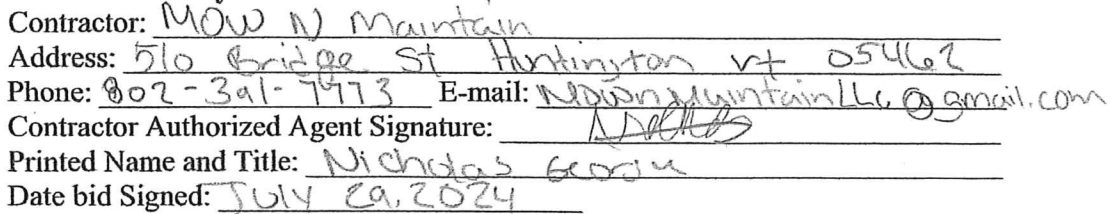 Contractor: MOW N Maintain
Address: 510 Bridge St Huntington vt 05462
Phone: 802-391-7973 E-mail: MownMaintainLLC@gmail.com
Contractor Authorized Agent Signature:
Printed Name and Title: Nicholas
Date bid Signed: JULY 29, 2024